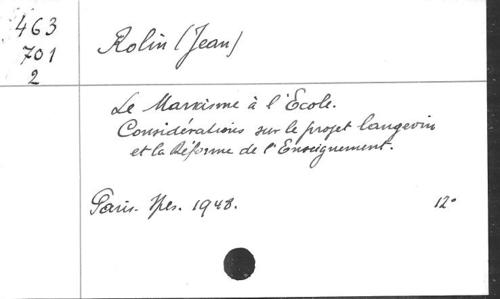 463
701
2
Rolin (Jean)
Le Marxisme à l'École.
Considérations sur le projet langevin
et la Réforme de l'Enseignement.
Paris. 1948. 12°